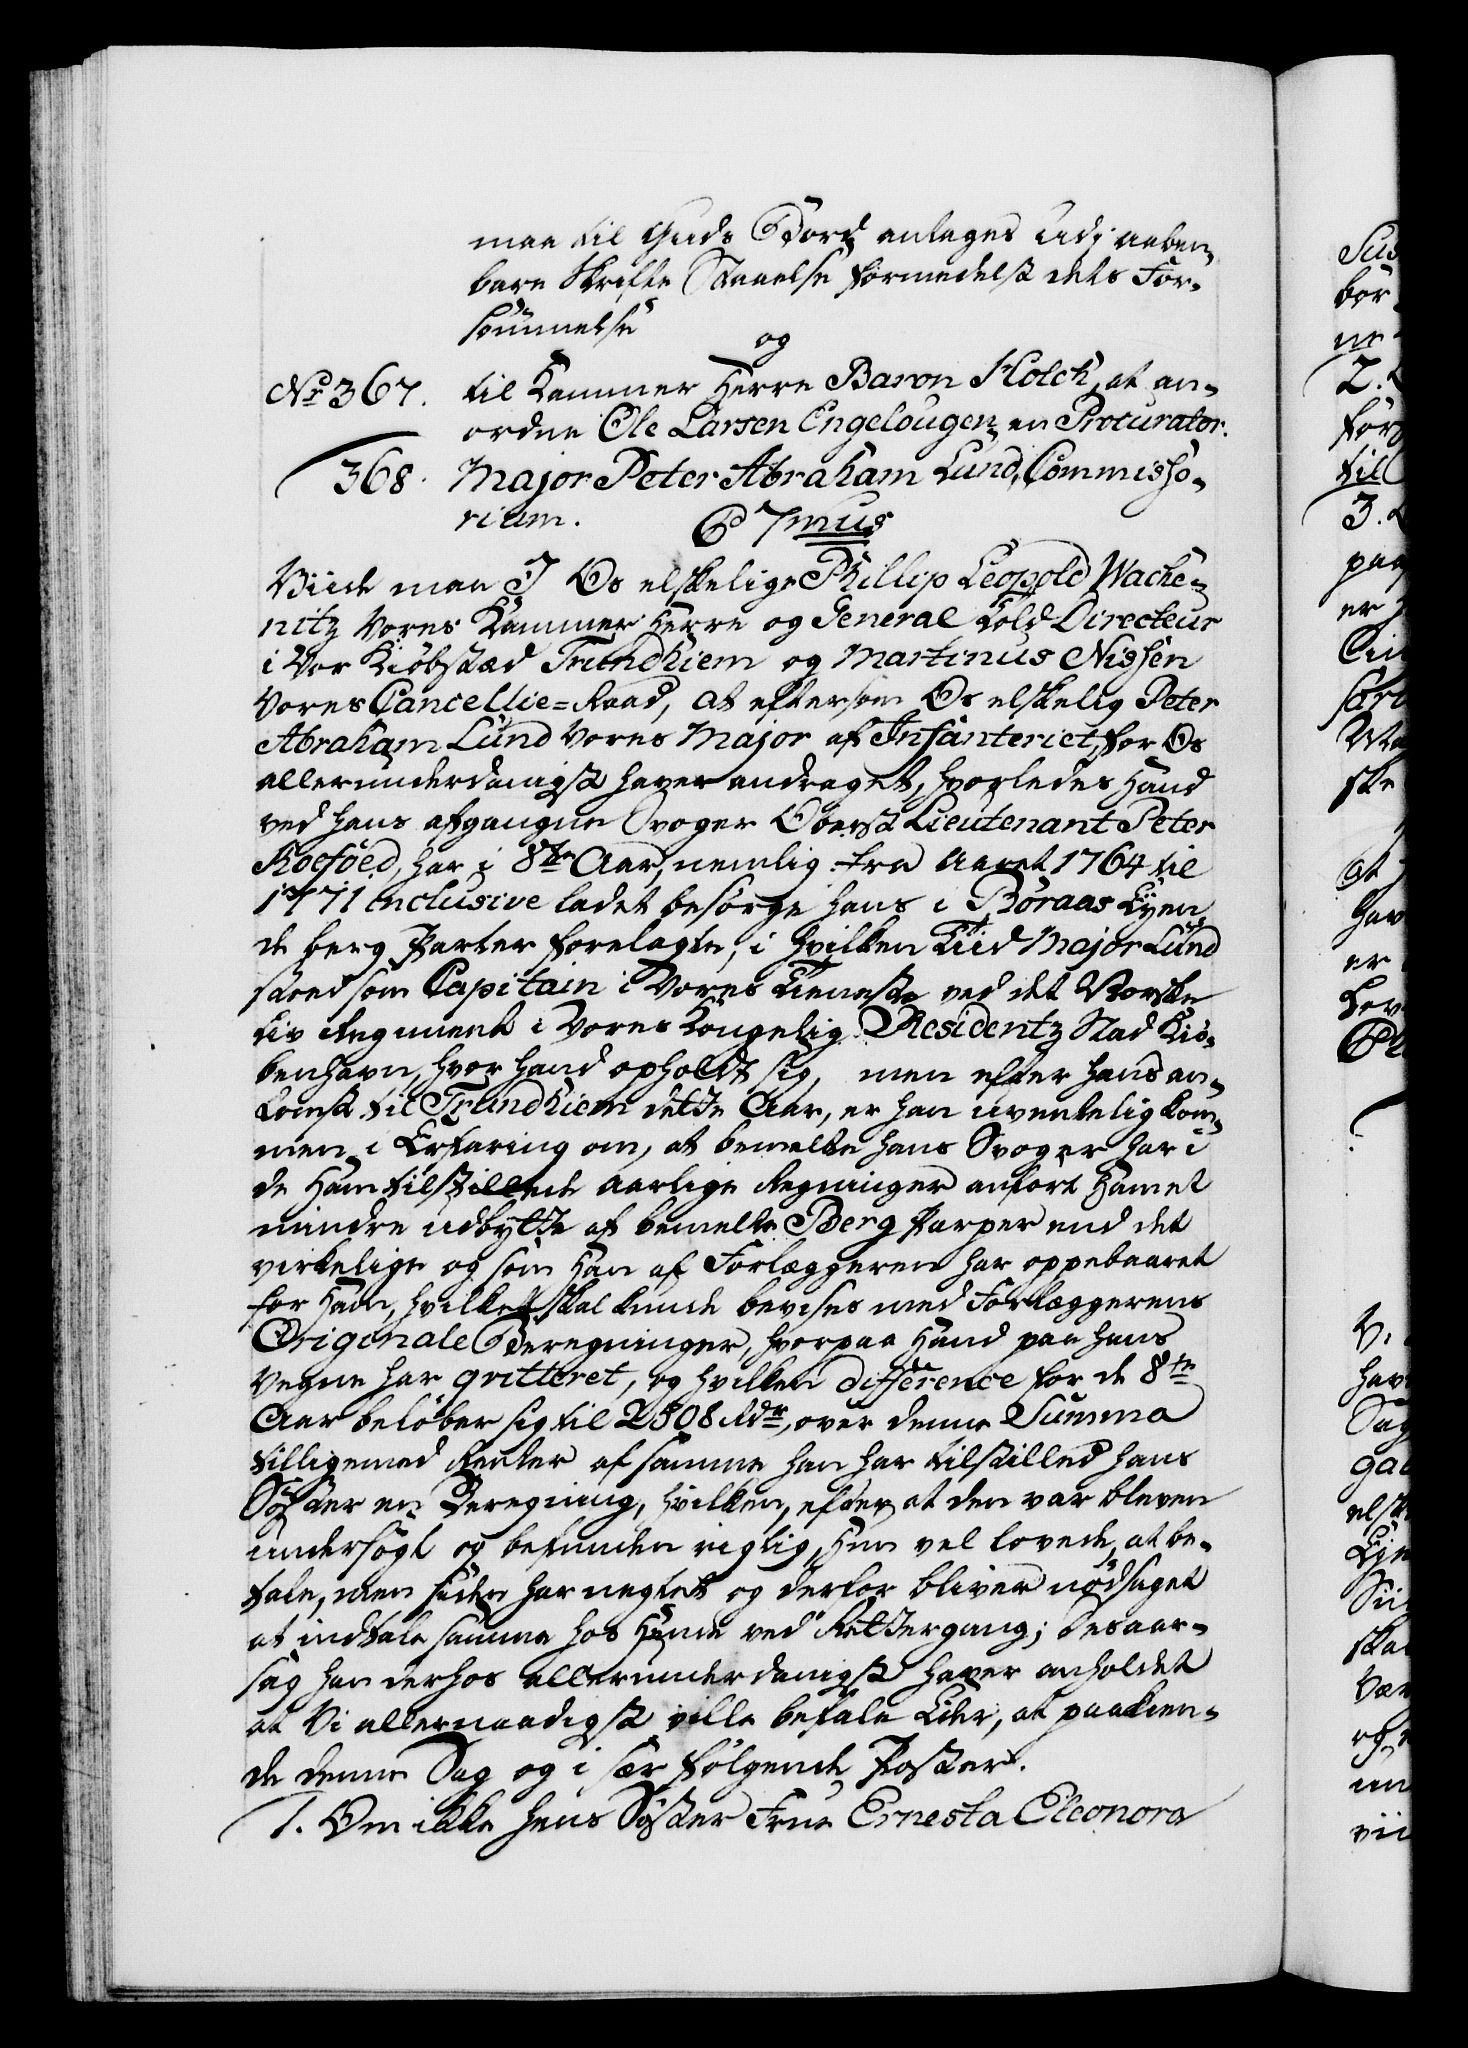 maa til Guds Bord antages udj aaben-
bare Skrifte Stanelse formedelst dets For-
sømmelse
og
No 367. til Kammer Herre Baron Holck, at an-
ordne Ole Larsen Engelougen en Procurator.
368. Major Peter Abraham Lund, Commisso-
rium. C 7mus
Viide maa I Os elskelige Phillip Leopold Wacke-
nitz Vores Kammer Herre og General Told Directeur
i Vor Kiøbstæd Trundhiem og Martinus Nissen
Vores Cancellie-Raad, at eftersom Os elskelig Peter
Abraham Lund Vores Major af Infanteriet, for Os
allerunderdanigst haver andraget, hvorledes Hand
ved hans afgangne Svoger Oberst Lieutenant Peter
Koefoed, har i 8te Aar, nemlig fra Aaret 1764 til
1771 inclusive ladet besørge hans i Röraas Eyen-
de berg Parter forelagte, i hvilken Tiid Major Lund
stoed som Capitain i Vores Tieneste ved det Norske
Liv Regiment i Vores Kongelig Residentz Stad Kiø-
benhavn, hvor hand opholdt sig, men efter hans an-
komst til Trundhiem dette Aar, er han uventelig kom-
men i Erfaring om, at bemelte hans Svoger har i
de Ham tilstillede Aarlige Regninger anført Hamet
mindre udbytte af bemelte Berg Parter end det
virkelige og som Han af Forlæggeren har oppebaaret
for Ham, hvilket skal kunde bevises med Forlæggerens
Originale Beregninger, hvorpaa Hand paa hans
Vegne har qvitteret, og hvilken difference for de 8te
Aar beløber sig til 2508 Rdr, over denne Summa
tilligemed Renter af samme han har tilstilled hans
Søster en Beregning, hvilken, efter at den var bleven
undersøgt og befunden rigtig, Hun vel lovede at be-
tale, men siden har negtet og derfor bliver nødsaget
at indtale samme hos Hende ved Rettergang; Desaar-
sag han derhos allerunderdanigst haver anholdet
at Vi allernaadigst ville befale Eder, at paakien-
de denne Sag og i sær følgende Poster.
1. Om ikke hans Søster Frue Ernesta Eleonora